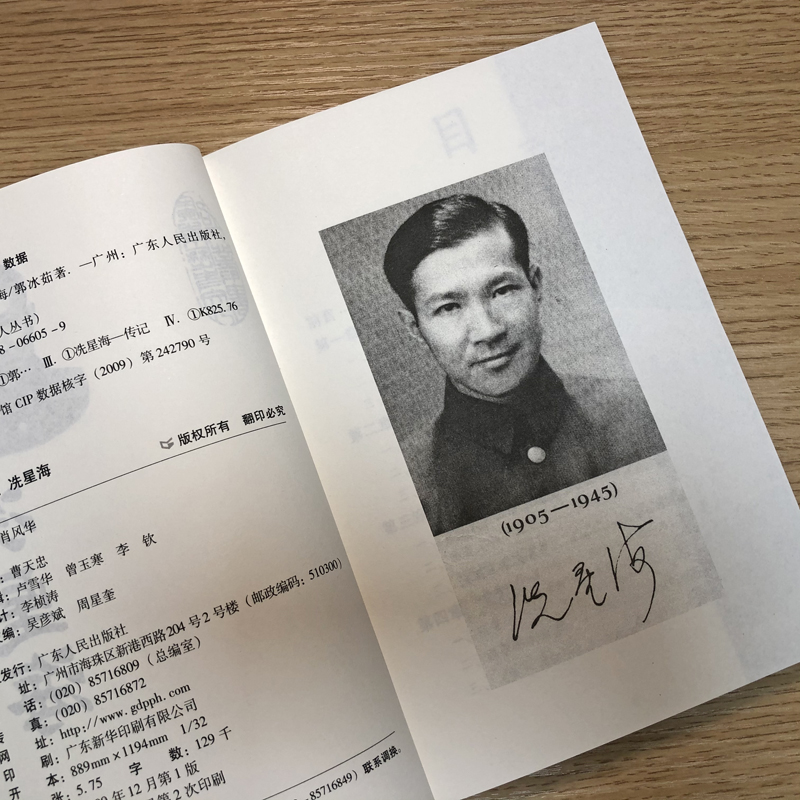 数据
海/郭冰茹著. —广州：广东人民出版社，
人丛书）
8-06605-9
①郭… Ⅲ. ①冼星海—传记 Ⅳ. ①K825.76
馆 CIP 数据核字（2009）第 242790 号
版权所有 翻印必究
冼星海
肖风华
：曹天忠
：卢雪华 曾玉寒 李 钦
计：李桢涛
编：吴彦斌 周星奎
发行：广东人民出版社
址：广州市海珠区新港西路 204 号 2 号楼（邮政编码：510300）
话：（020）85716809（总编室）
真：（020）85716872
网 址：http://www.gdpph.com
印 刷：广东新华印刷有限公司
开 本：889mm×1194mm 1/32
张：5.75 字 数：129 千
年 12 月第 1 版
第 2 次印刷
-85716849）联系调换。
(1905—1945)
冼星海